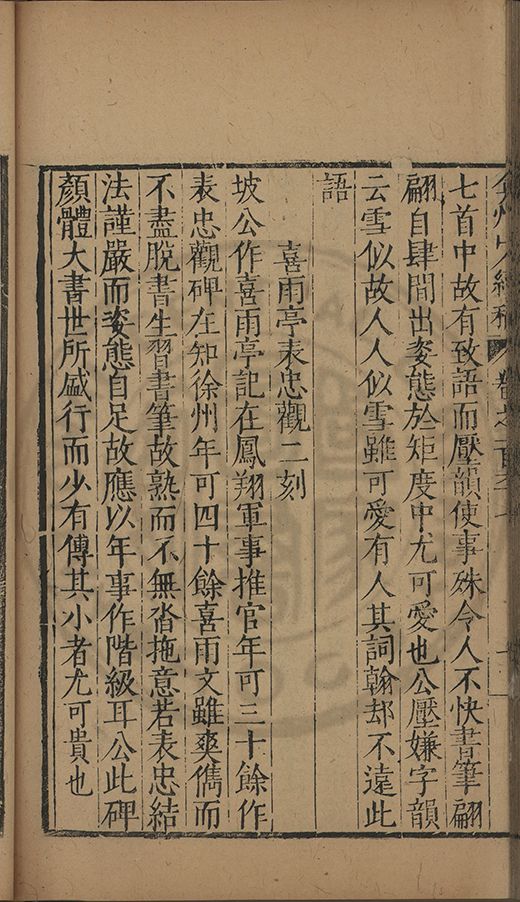 七首中故有致語而壓韻使事殊令人不快書筆翩
翩自肆間出姿態於矩度中尤可愛也公壓嫌字韻
云雪似故人人似雪雖可愛有人其詞翰却不遠此
語
喜雨亭表忠觀二刻
坡公作喜雨亭記在鳳翔軍事推官年可三十餘作
表忠觀碑在知徐州年可四十餘喜雨文雖爽儁而
不盡脫書生習書筆故熟而不無沓拖意若表忠結
法謹嚴而姿態自足故應以年事作階級耳公此碑
顏體大書世所盛行而少有傳其小者尤可貴也